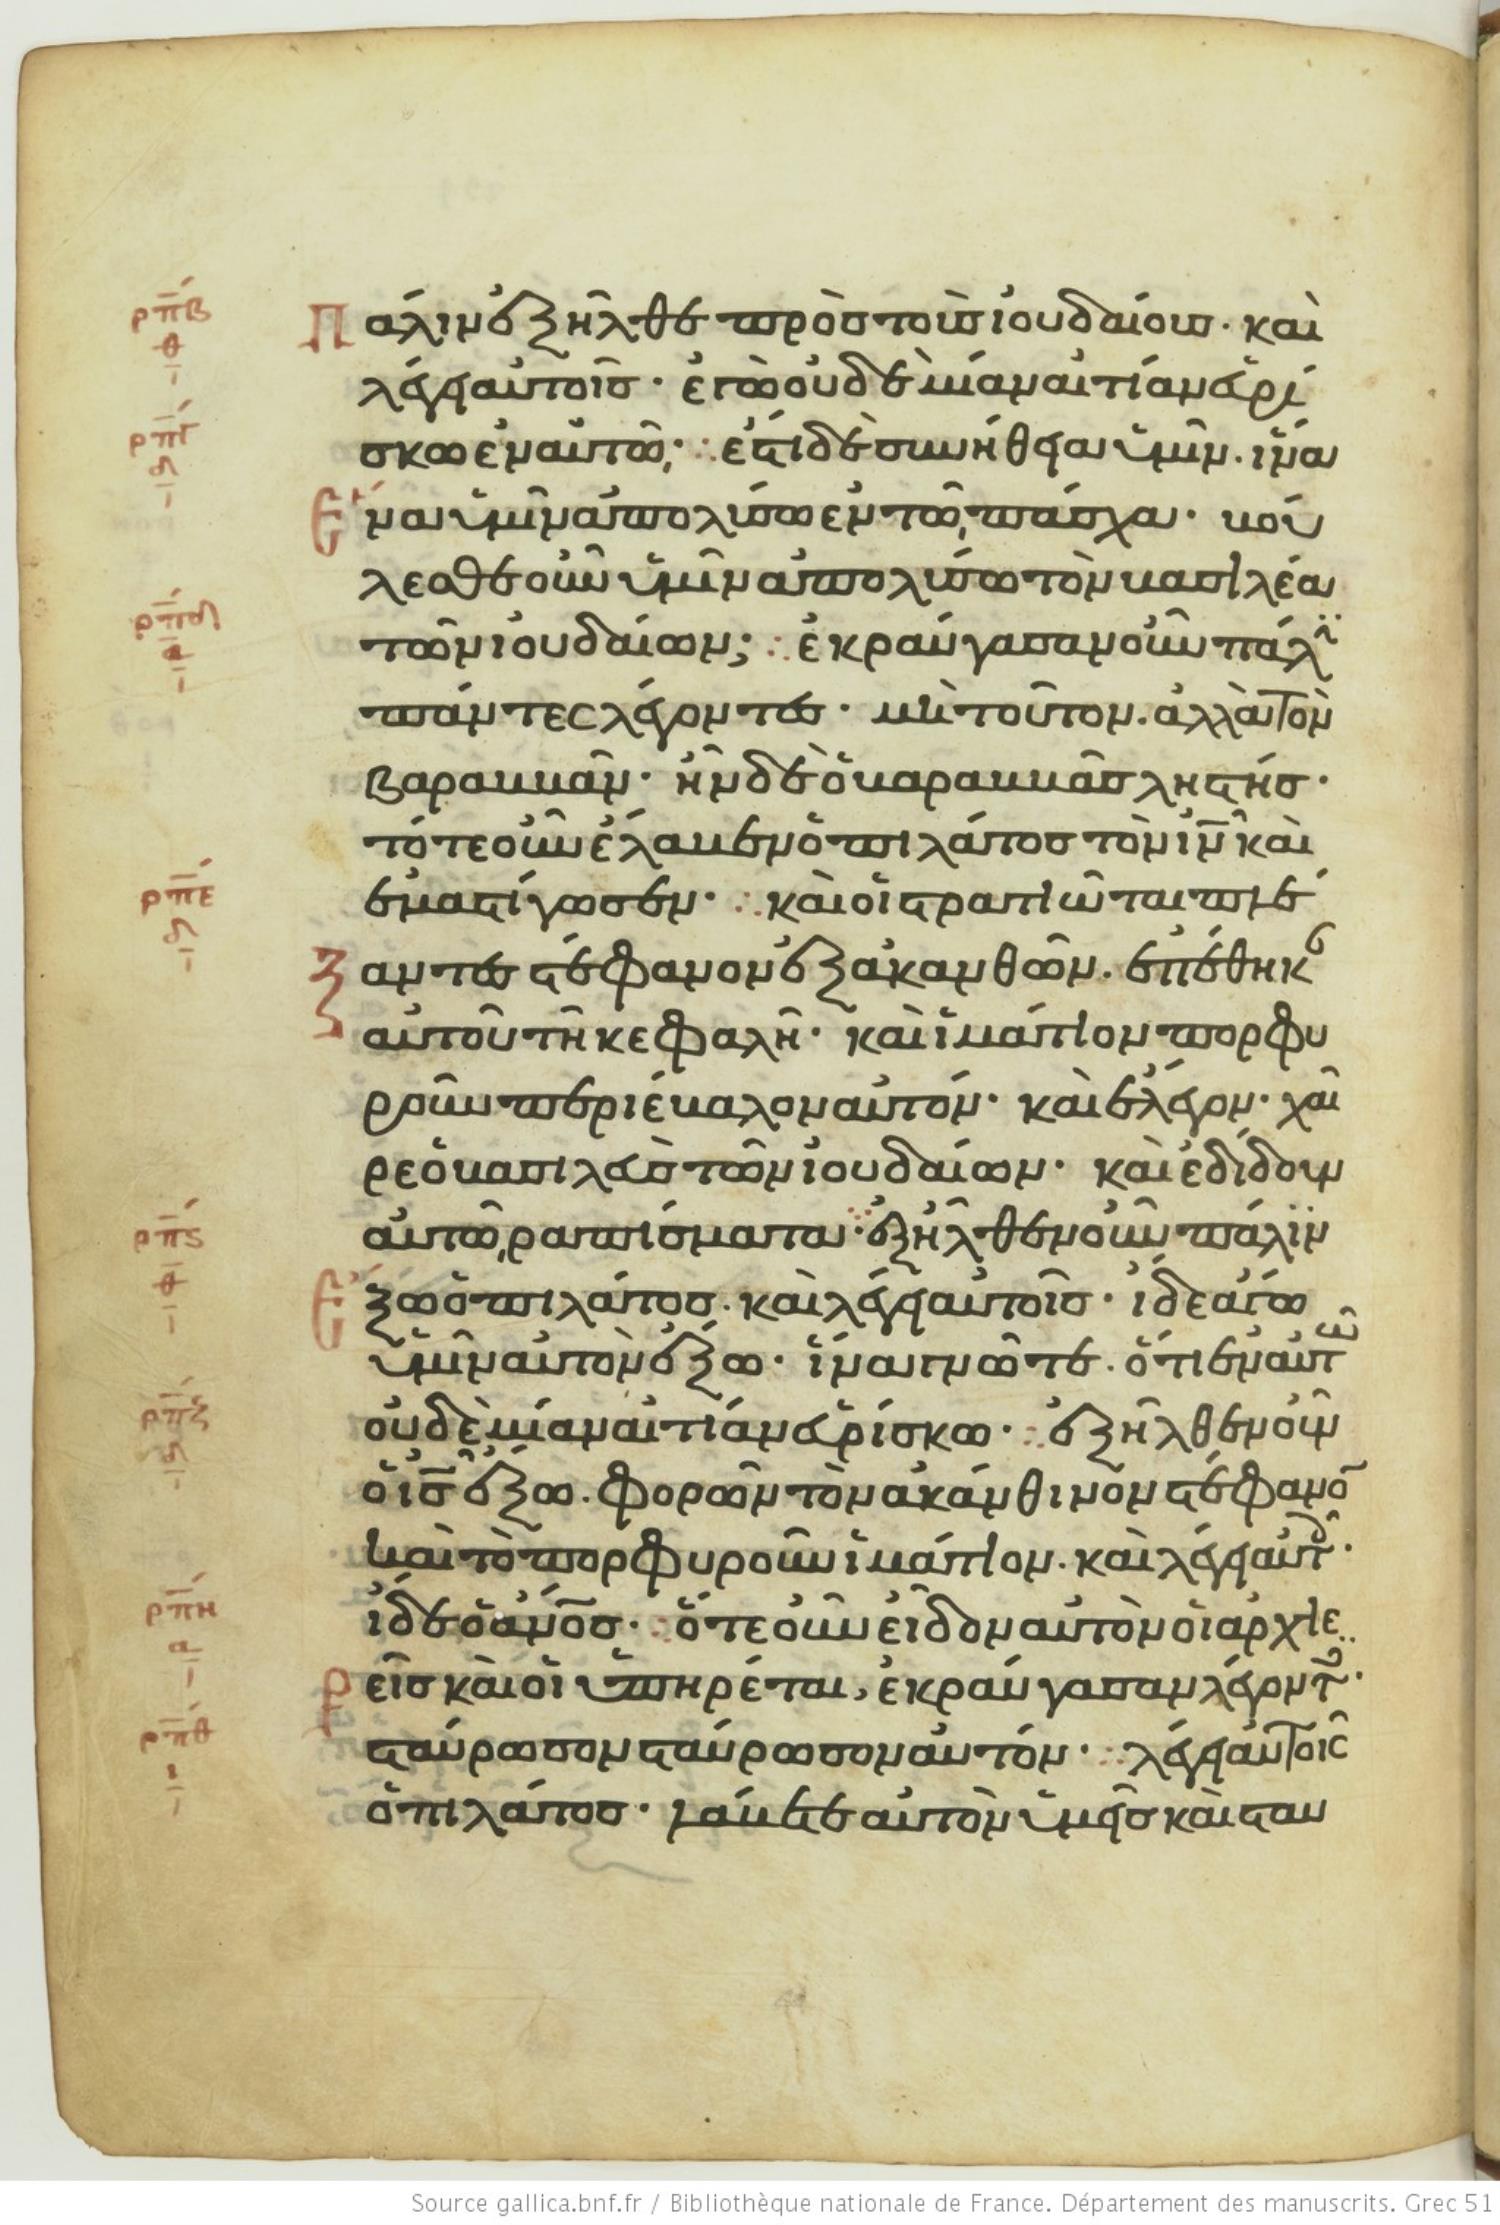 Πάλιν ἐξῆλθε πρὸς τοὺς ἰουδαίους· καὶ
λέγει αὐτοῖς· ἐγὼ οὐδεμίαν αἰτίαν εὑρί
σκω ἐν αὐτῶ· ἔστι δὲ συνήθεια ὑμῖν. ἵνα
ἕνα ὑμῖν ἀπολύσω ἐν τῶ πάσχα· βού
λεσθε οὖν ὑμῖν ἀπολύσω τὸν βασιλέα
τῶν ἰουδαίων; ἐκραύγασαν οὖν πάλϊ
πάντες λέγοντες· μὴ τοῦτον. ἀλλὰ τὸν
βαραββᾶν· ἦν δὲ ὁ βαραββᾶς ληστής·
τότε οὖν ἔλαβεν ὁ πιλάτος τὸν ιν καὶ
ἐμαστίγωσεν· καὶ οἱ στρατιῶται πλέ
ξαντες στέφανον ἐξ ἀκανθῶν. ἐπέθηκ
αὐτοῦ τῆ κεφαλῆ· καὶ ἱμάτιον πορφυ
ροῦν περιέβαλον αὐτόν· καὶ ἔλεγον· χαῖ
ρε ὁ βασιλεὺς τῶν ἰουδαίων· καὶ ἐδίδουν
αὐτῶ ῥαπίσματα· ἐξῆλθεν οὖν πάλϊν
ἔξω ὁ πιλάτος. καὶ λέγει αὐτοῖς· ἴδε ἄγω
ὑμῖν αὐτὸν ἔξω· ἵνα γνῶτε. ὅτι ἐν αὐτῶ
οὐδεμίαν αἰτίαν εὑρίσκω· ἐξῆλθεν οὖν
ὁ ις ἔξω. φορῶν τὸν ἀκάνθινον στέφανο
καὶ τὸ πορφυροῦν ἱμάτιον. καὶ λέγει αὐτ·
ἴδε ὁ ἄνος· ὅτε οὖν εἶδον αὐτὸν οἱ ἀρχιε
ρεῖς καὶ οἱ ὑπηρέται, ἐκραύγασαν λέγοντ·
σταύρωσον σταύρωσον αὐτόν· λέγει αὐτοῖς
ὁ πιλάτος· λάβετε αὐτὸν ὑμεῖς καὶ σταυ
ρπβ
θ
ρπγ
ρπδ
α
ρπε
ρπς
θ
ρπζ
ρπη
α
ρπθ
ι
Source gallica.bnf.fr / Bibliothèque nationale de France. Département des manuscrits. Grec 51